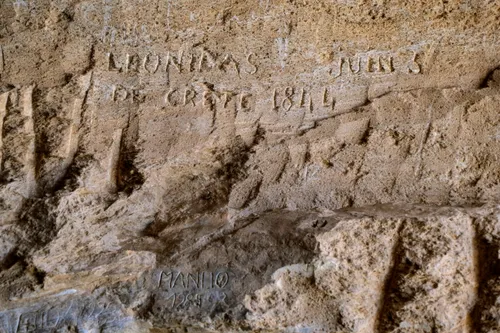 LEONIDAS JUIN 3
DE CRETE 1844
MANHO